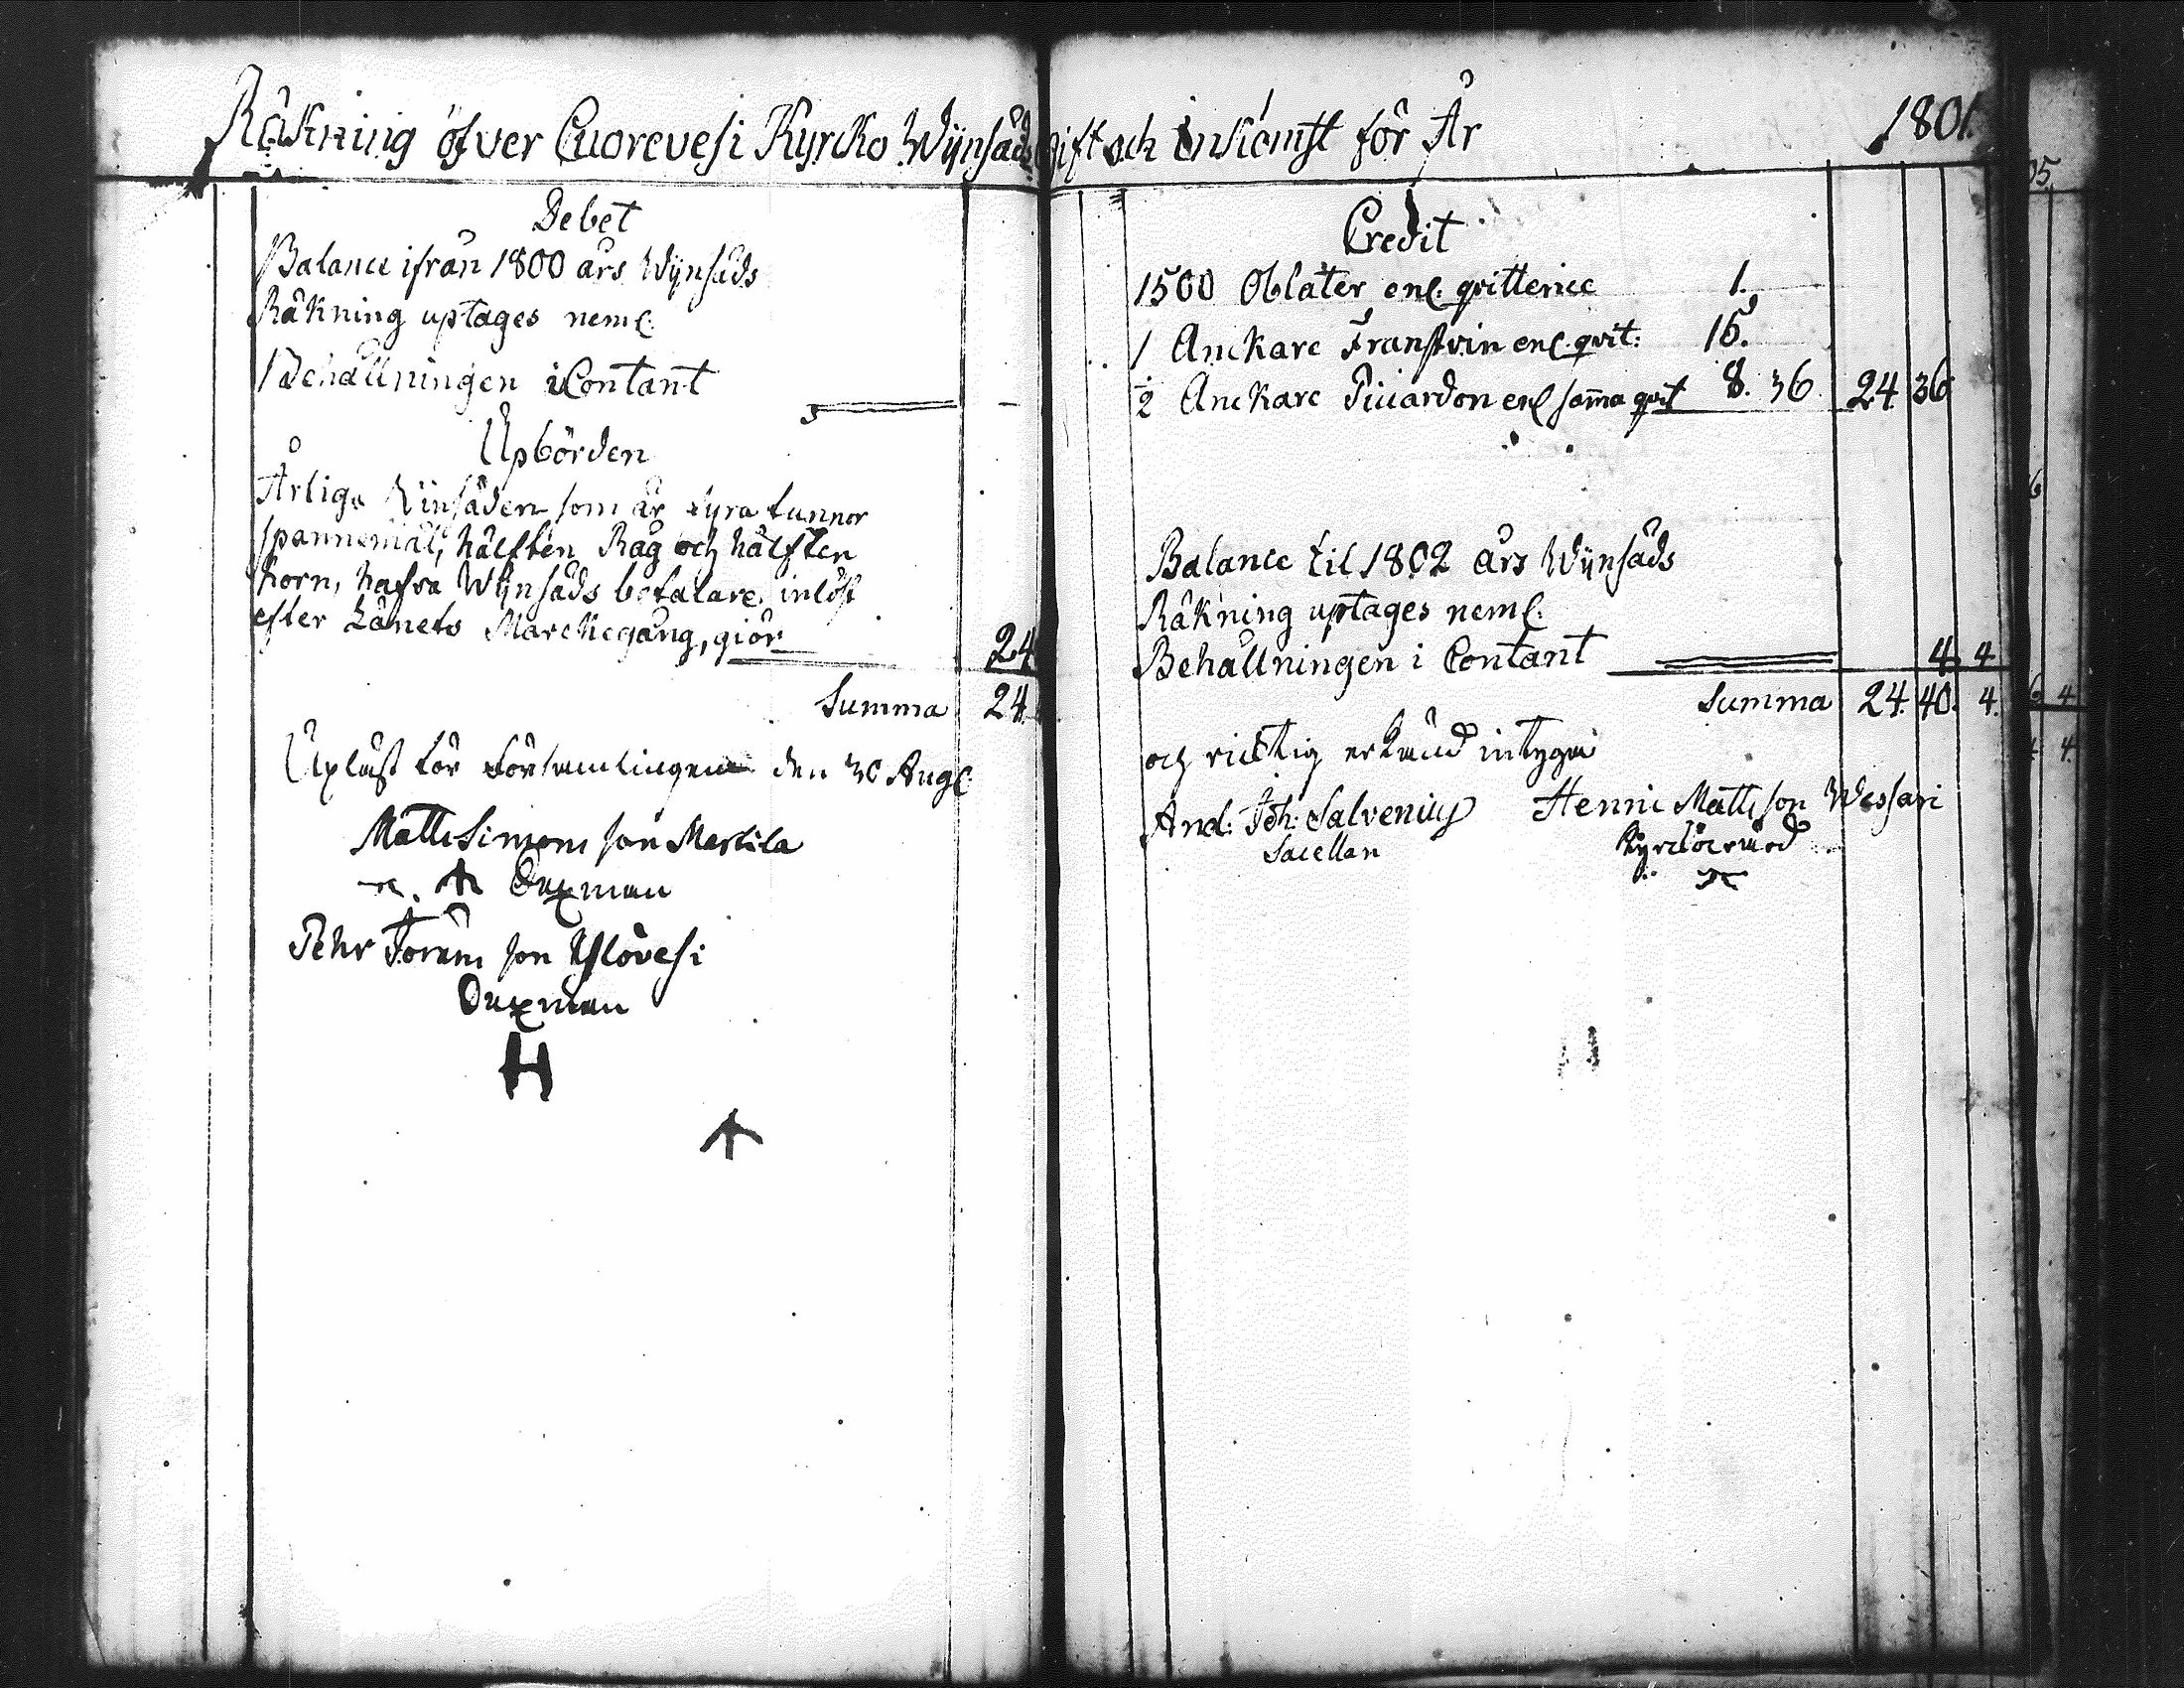 Räkning öfver Cuorevesi Kyrcko Wijnsäds gift och inkomst för År 1801.
Debet
Balance ifrån 1800 års Wijnsäds
Räkning uptages neml.
Behållningen i Contant
Upbörden
Årliga Winsäden som är fyra tunnor
spannemål, hälften Råg och hälften
korn, hafva Wijnsäds betalare inlöst
efter Länets Marckegång, giör 24
Summa 24.
Upläst för Församlingen den 30 Aug.
Matts Simons son Mertila
Sexman
Pehr son Ylövesi
Sexman
H
Credit
1500 Oblater enl. qvittence 1.
1 Anckare Franskvin enl. qvit: 15.
½ Anckare Piccardon enl samma qvit 8. 36 24 36
Balance til 1802 års Wijnsäds
Räkning uptages neml.
Behållningen i Contant 4 4
Summa 24. 40. 4.
och richtig erkänd intyga
And: Joh: Salvenius Henric Matts son Wessari
Sacellan Kyrckovärd
05
6
6 4
4.